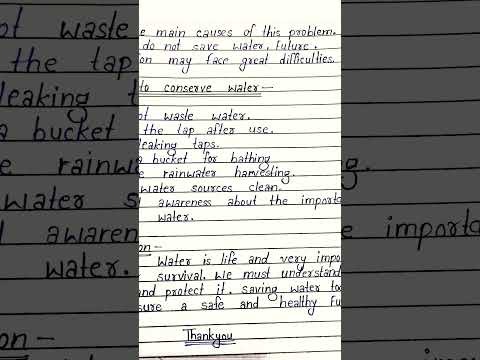 e main causes of this problem.
do not save water, future
on may face great difficulties.
to conserve water:-
ot waste water.
the tap after use.
leaking taps.
a bucket for bathing
e rainwater harvesting.
water sources clean.
d awareness about the importa
water.
on -
Water is life and very impo
survival. We must understand
and protect it. saving water to
sure a safe and healthy fu
Thankyou